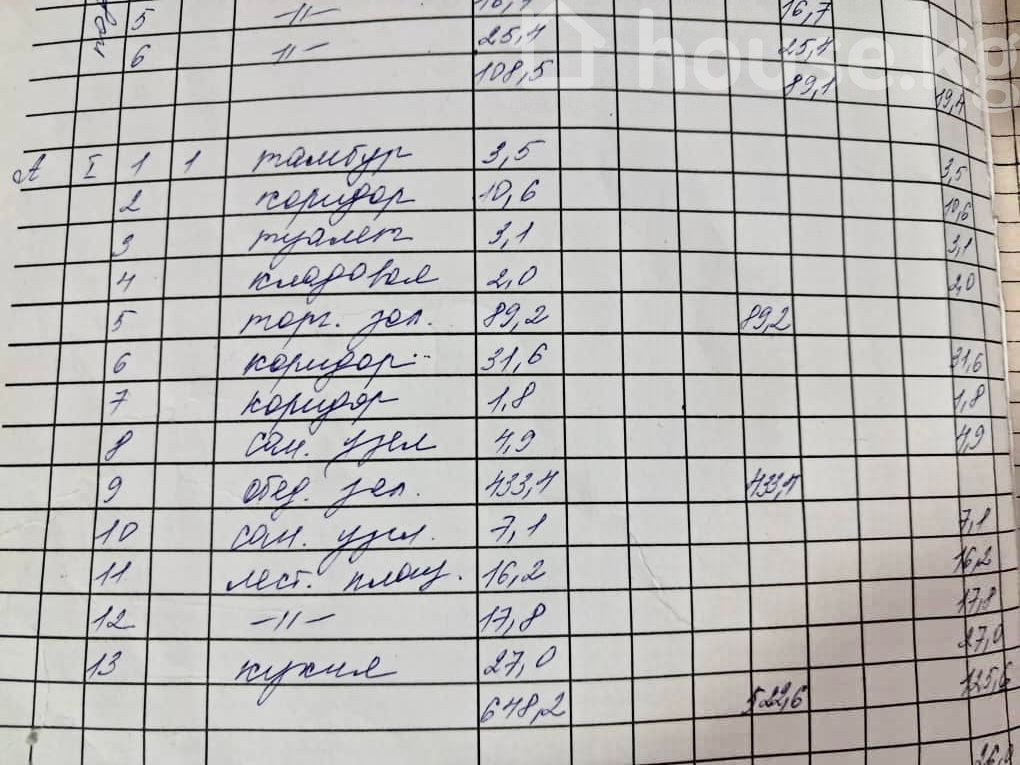 5 -"- 16,7 16,7
6 -"- 25,4 25,4
108,5 89,1 19,4
house.kg
А I 1 1 тамбур 3,5 3,5
2 коридор 10,6 10,6
3 туалет 3,1 3,1
4 кладовая 2,0 2,0
5 торг. зал. 89,2 89,2
6 коридор 31,6 31,6
7 коридор 1,8 1,8
8 сан. узел 4,9 4,9
9 обед. зал. 433,4 433,4
10 сан. узел. 7,1 7,1
11 лест. площ. 16,2 16,2
12 -"- 17,8 17,8
13 кухня 27,0 27,0
648,2 522,6 125,6